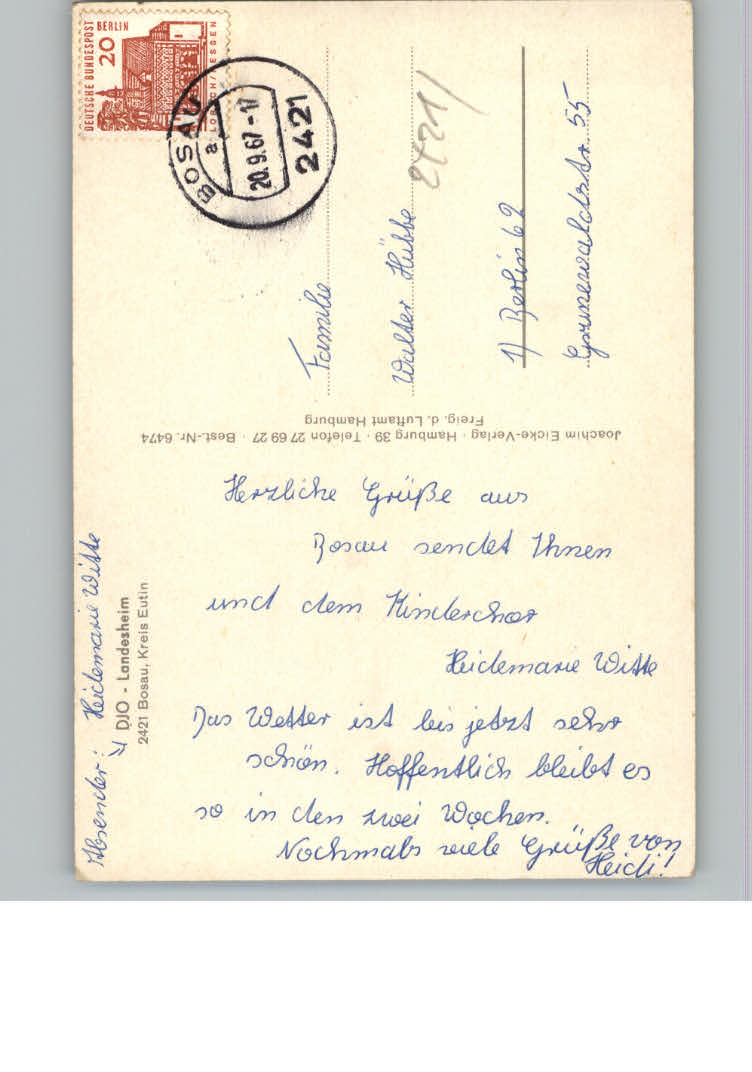 DEUTSCHE BUNDESPOST BERLIN
20
LORSCH/HESSEN
BOSAU
a
20.9.67-17
2421
2421/
Familie
Walter Hübbe
1) Berlin 62
Grunewaldstr. 55
Joachim Eicke-Verlag · Hamburg 39 · Telefon 27 69 27 · Best.-Nr. 6474
Freig. d. Luftamt Hamburg
Absender: Heidemarie Witte
DJO - Landesheim
2421 Bosau, Kreis Eutin
Herzliche Grüße aus
Bosau sendet Ihnen
und dem Kinderchor
Heidemarie Witte
Das Wetter ist bis jetzt sehr
schön. Hoffentlich bleibt es
so in den zwei Wochen.
Nochmals viele Grüße von
Heidi!